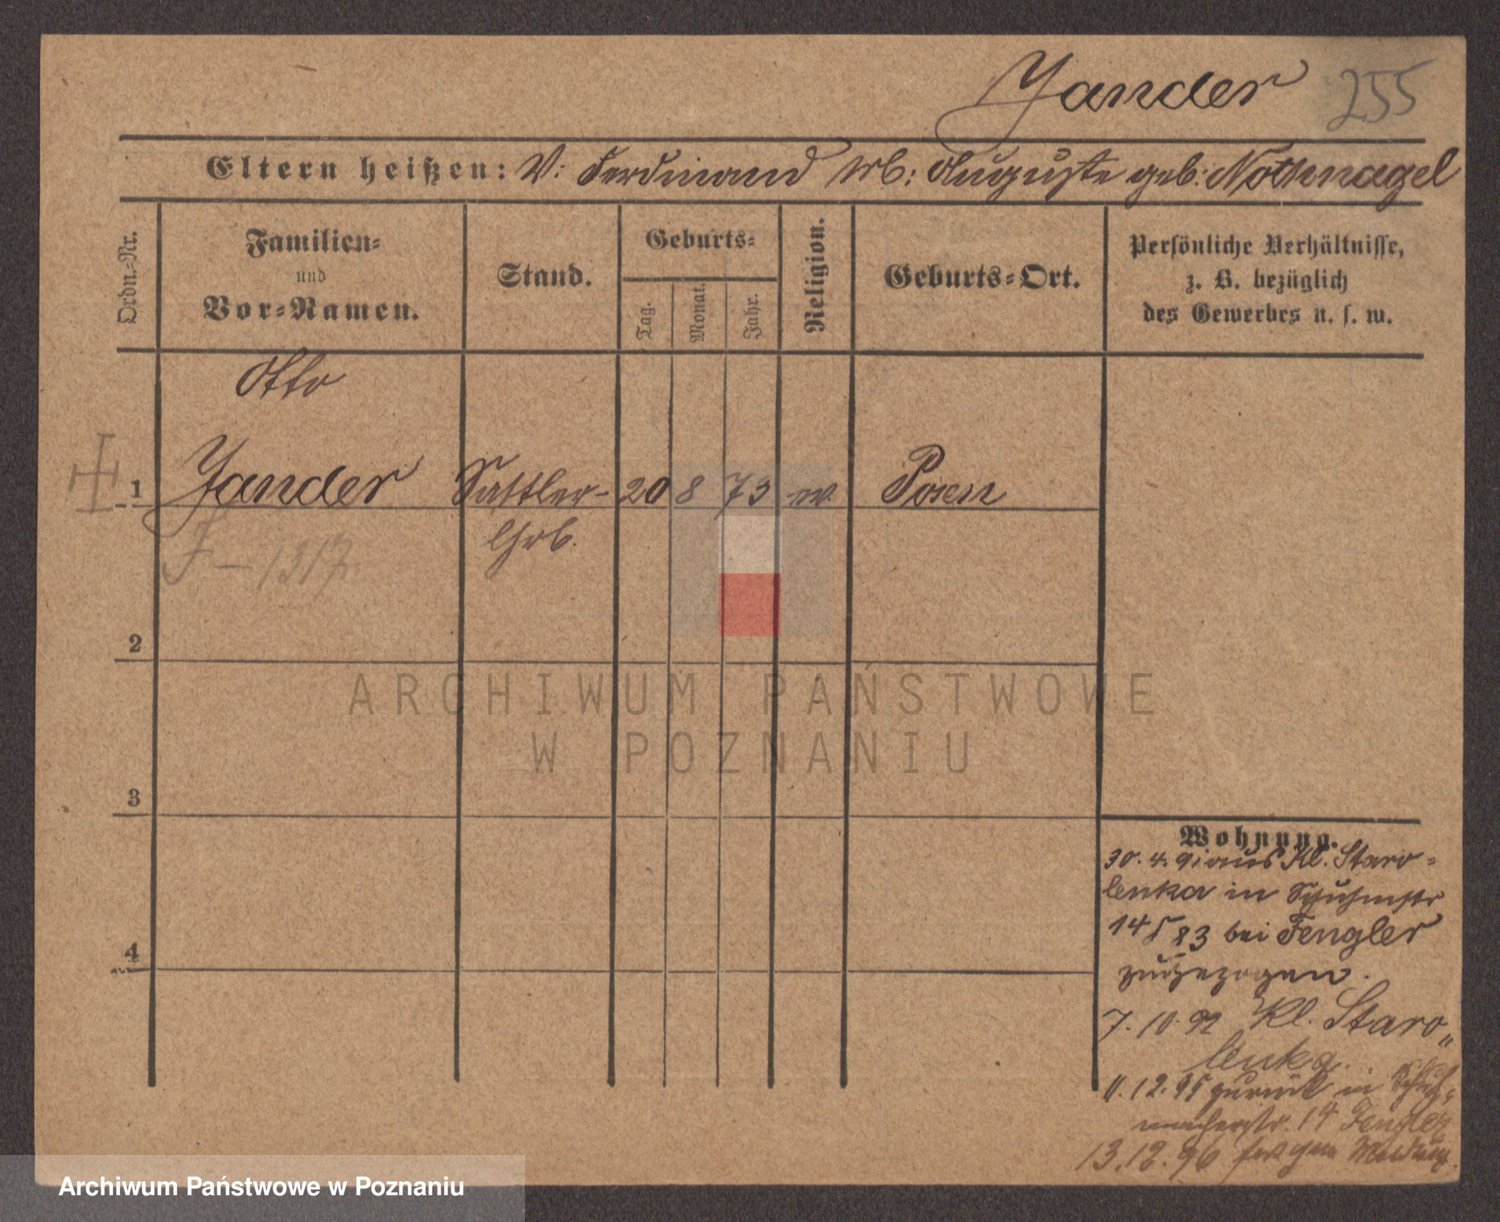 Yander 255
Eltern heißen: V: Ferdinand Mb: Auguste geb: Nothnagel
Ordn.-Nr.
Familien-
und
Vor-Namen.
Stand.
Geburts-
Tag.
Monat.
Jahr.
Religion.
Geburts-Ort.
Persönliche Verhältnisse,
z. B. bezüglich
des Gewerbes u. s. w.
Otto
1 Yander Sattler- 20 8 73 ev. Posen
Lhrb.
F - 1317
2
ARCHIWUM PAŃSTWOWE
W POZNANIU
3
4
Wohnung.
30. 4. 91 aus Kl. Staro-
lenka in Schuhmstr
14 83 bei Fengler
zugezogen.
7. 10. 92 Kl. Staro„
lenka.
11. 12. 95 zurück in Schuh-
macherstr. 14 Fengler
13. 12. 96
Archiwum Państwowe w Poznaniu